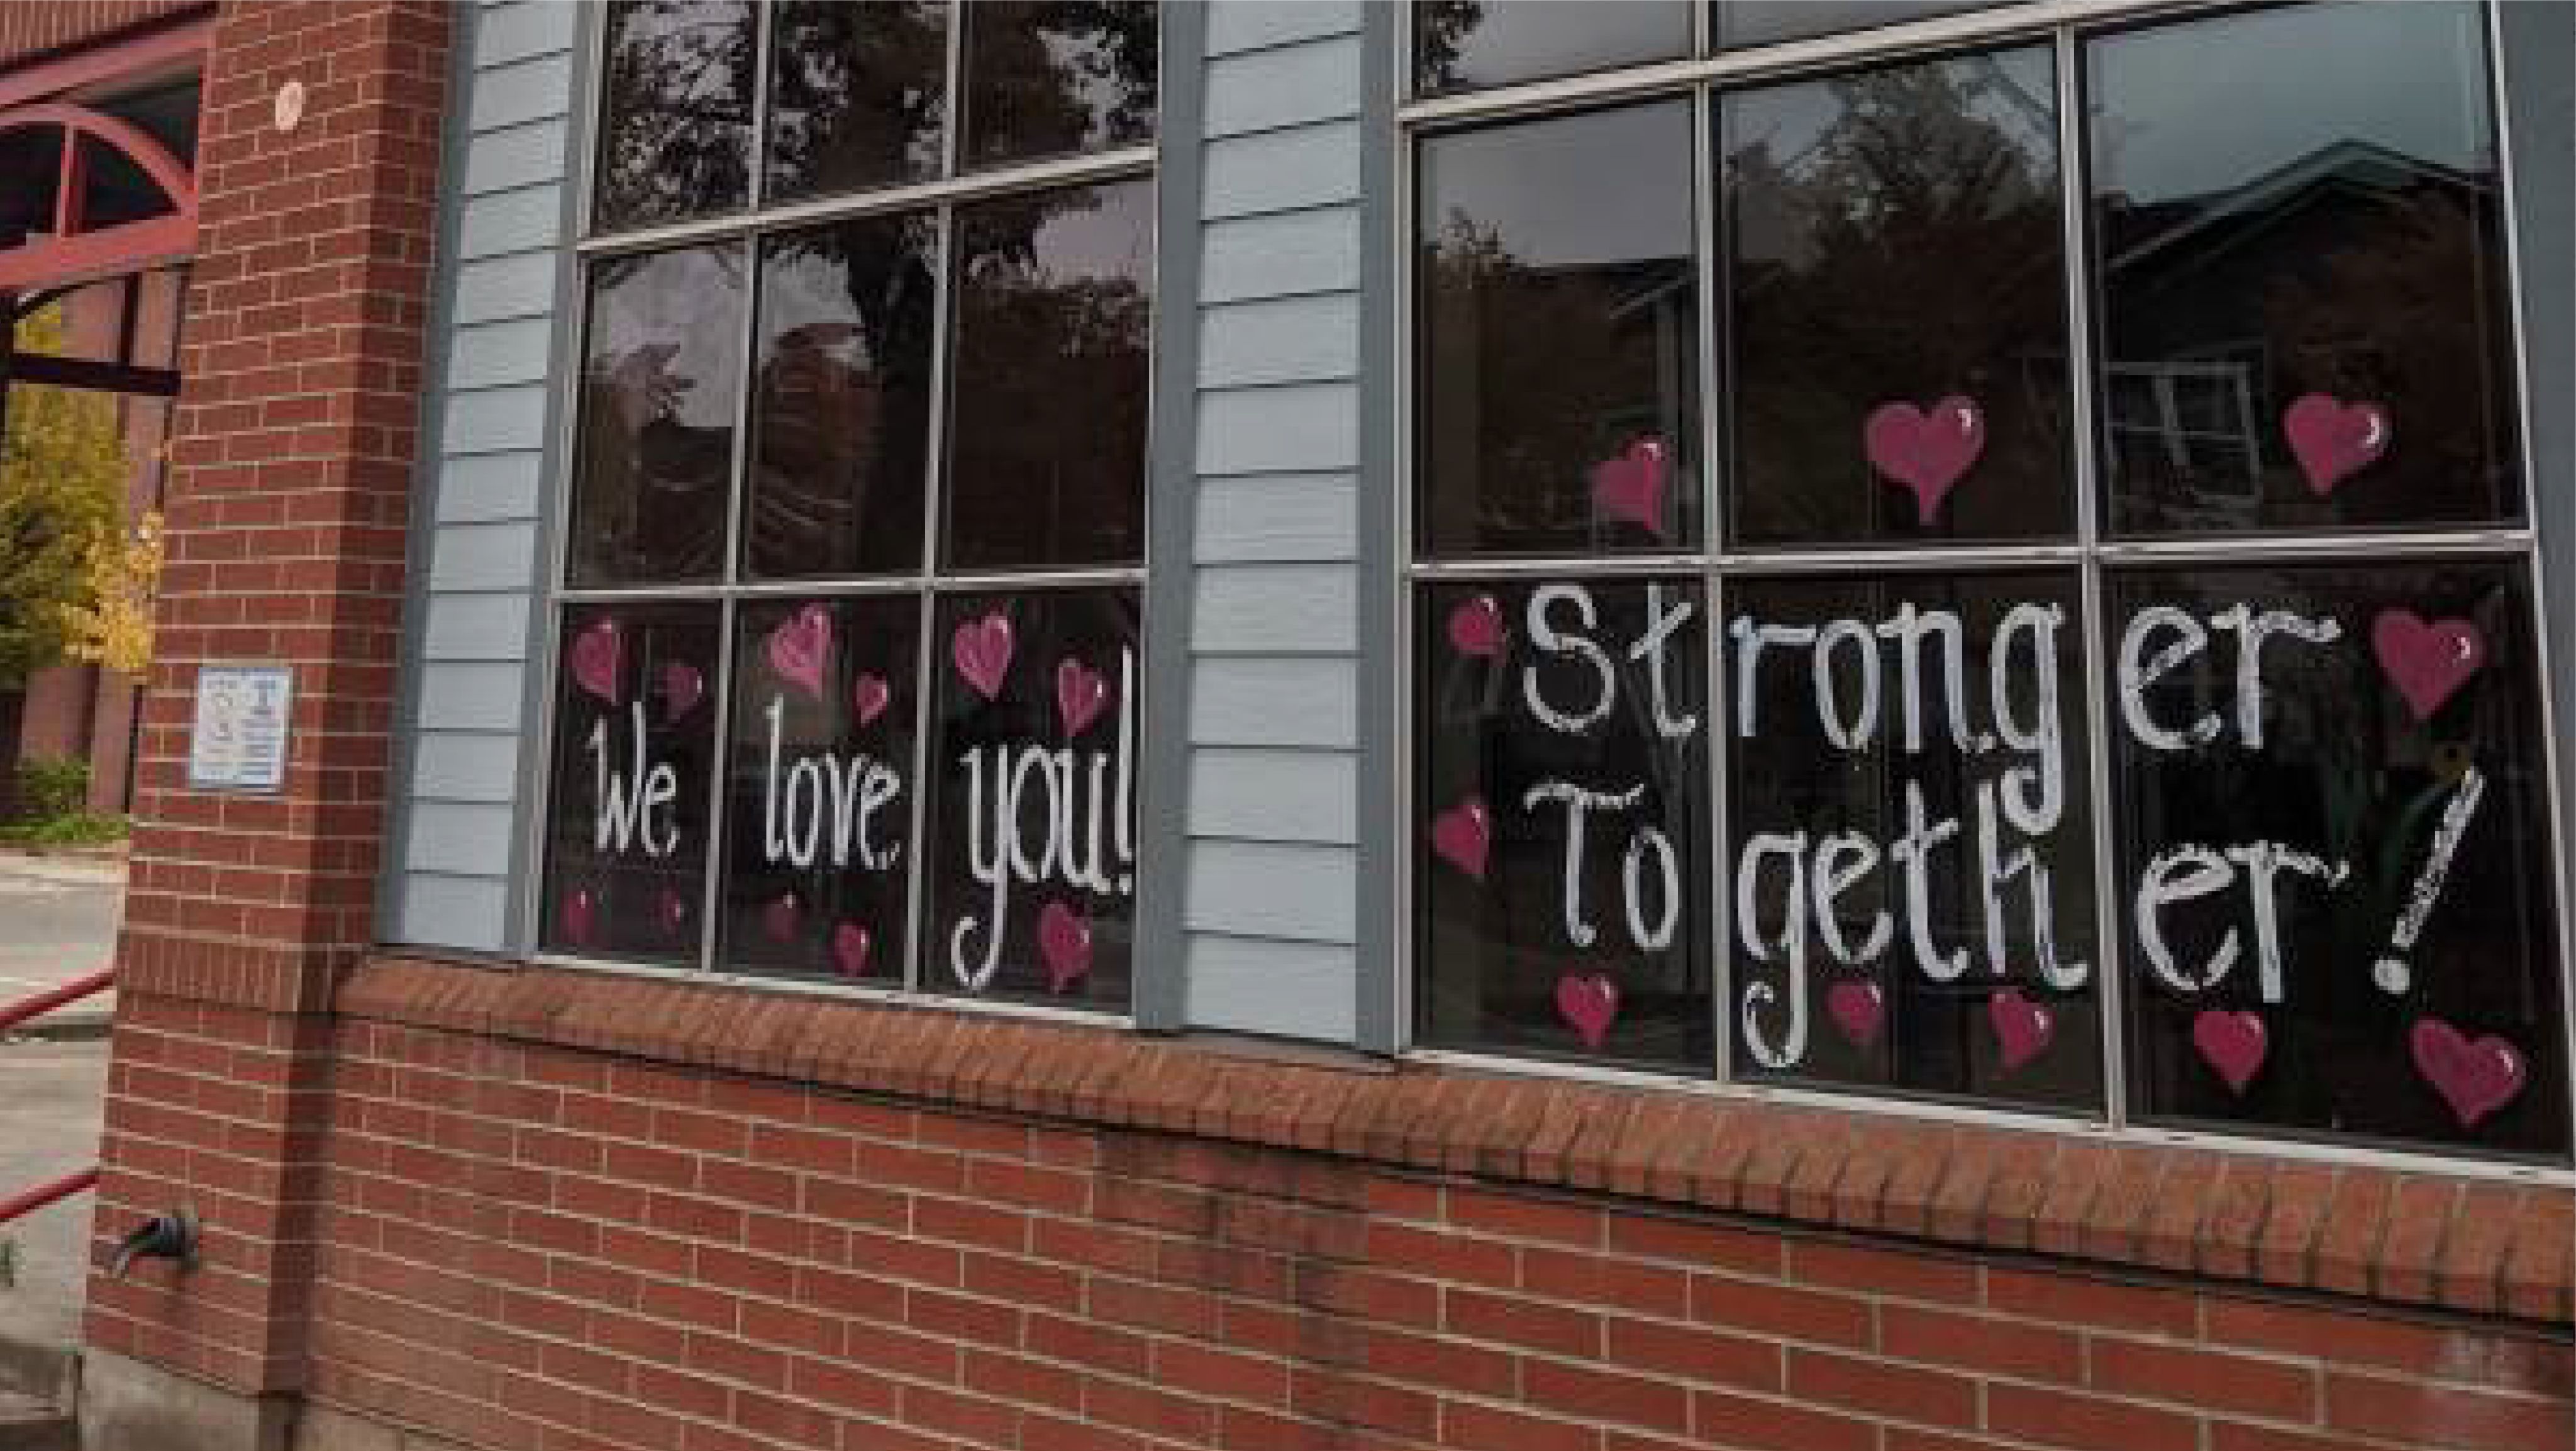 We love you!
Stronger
Together!